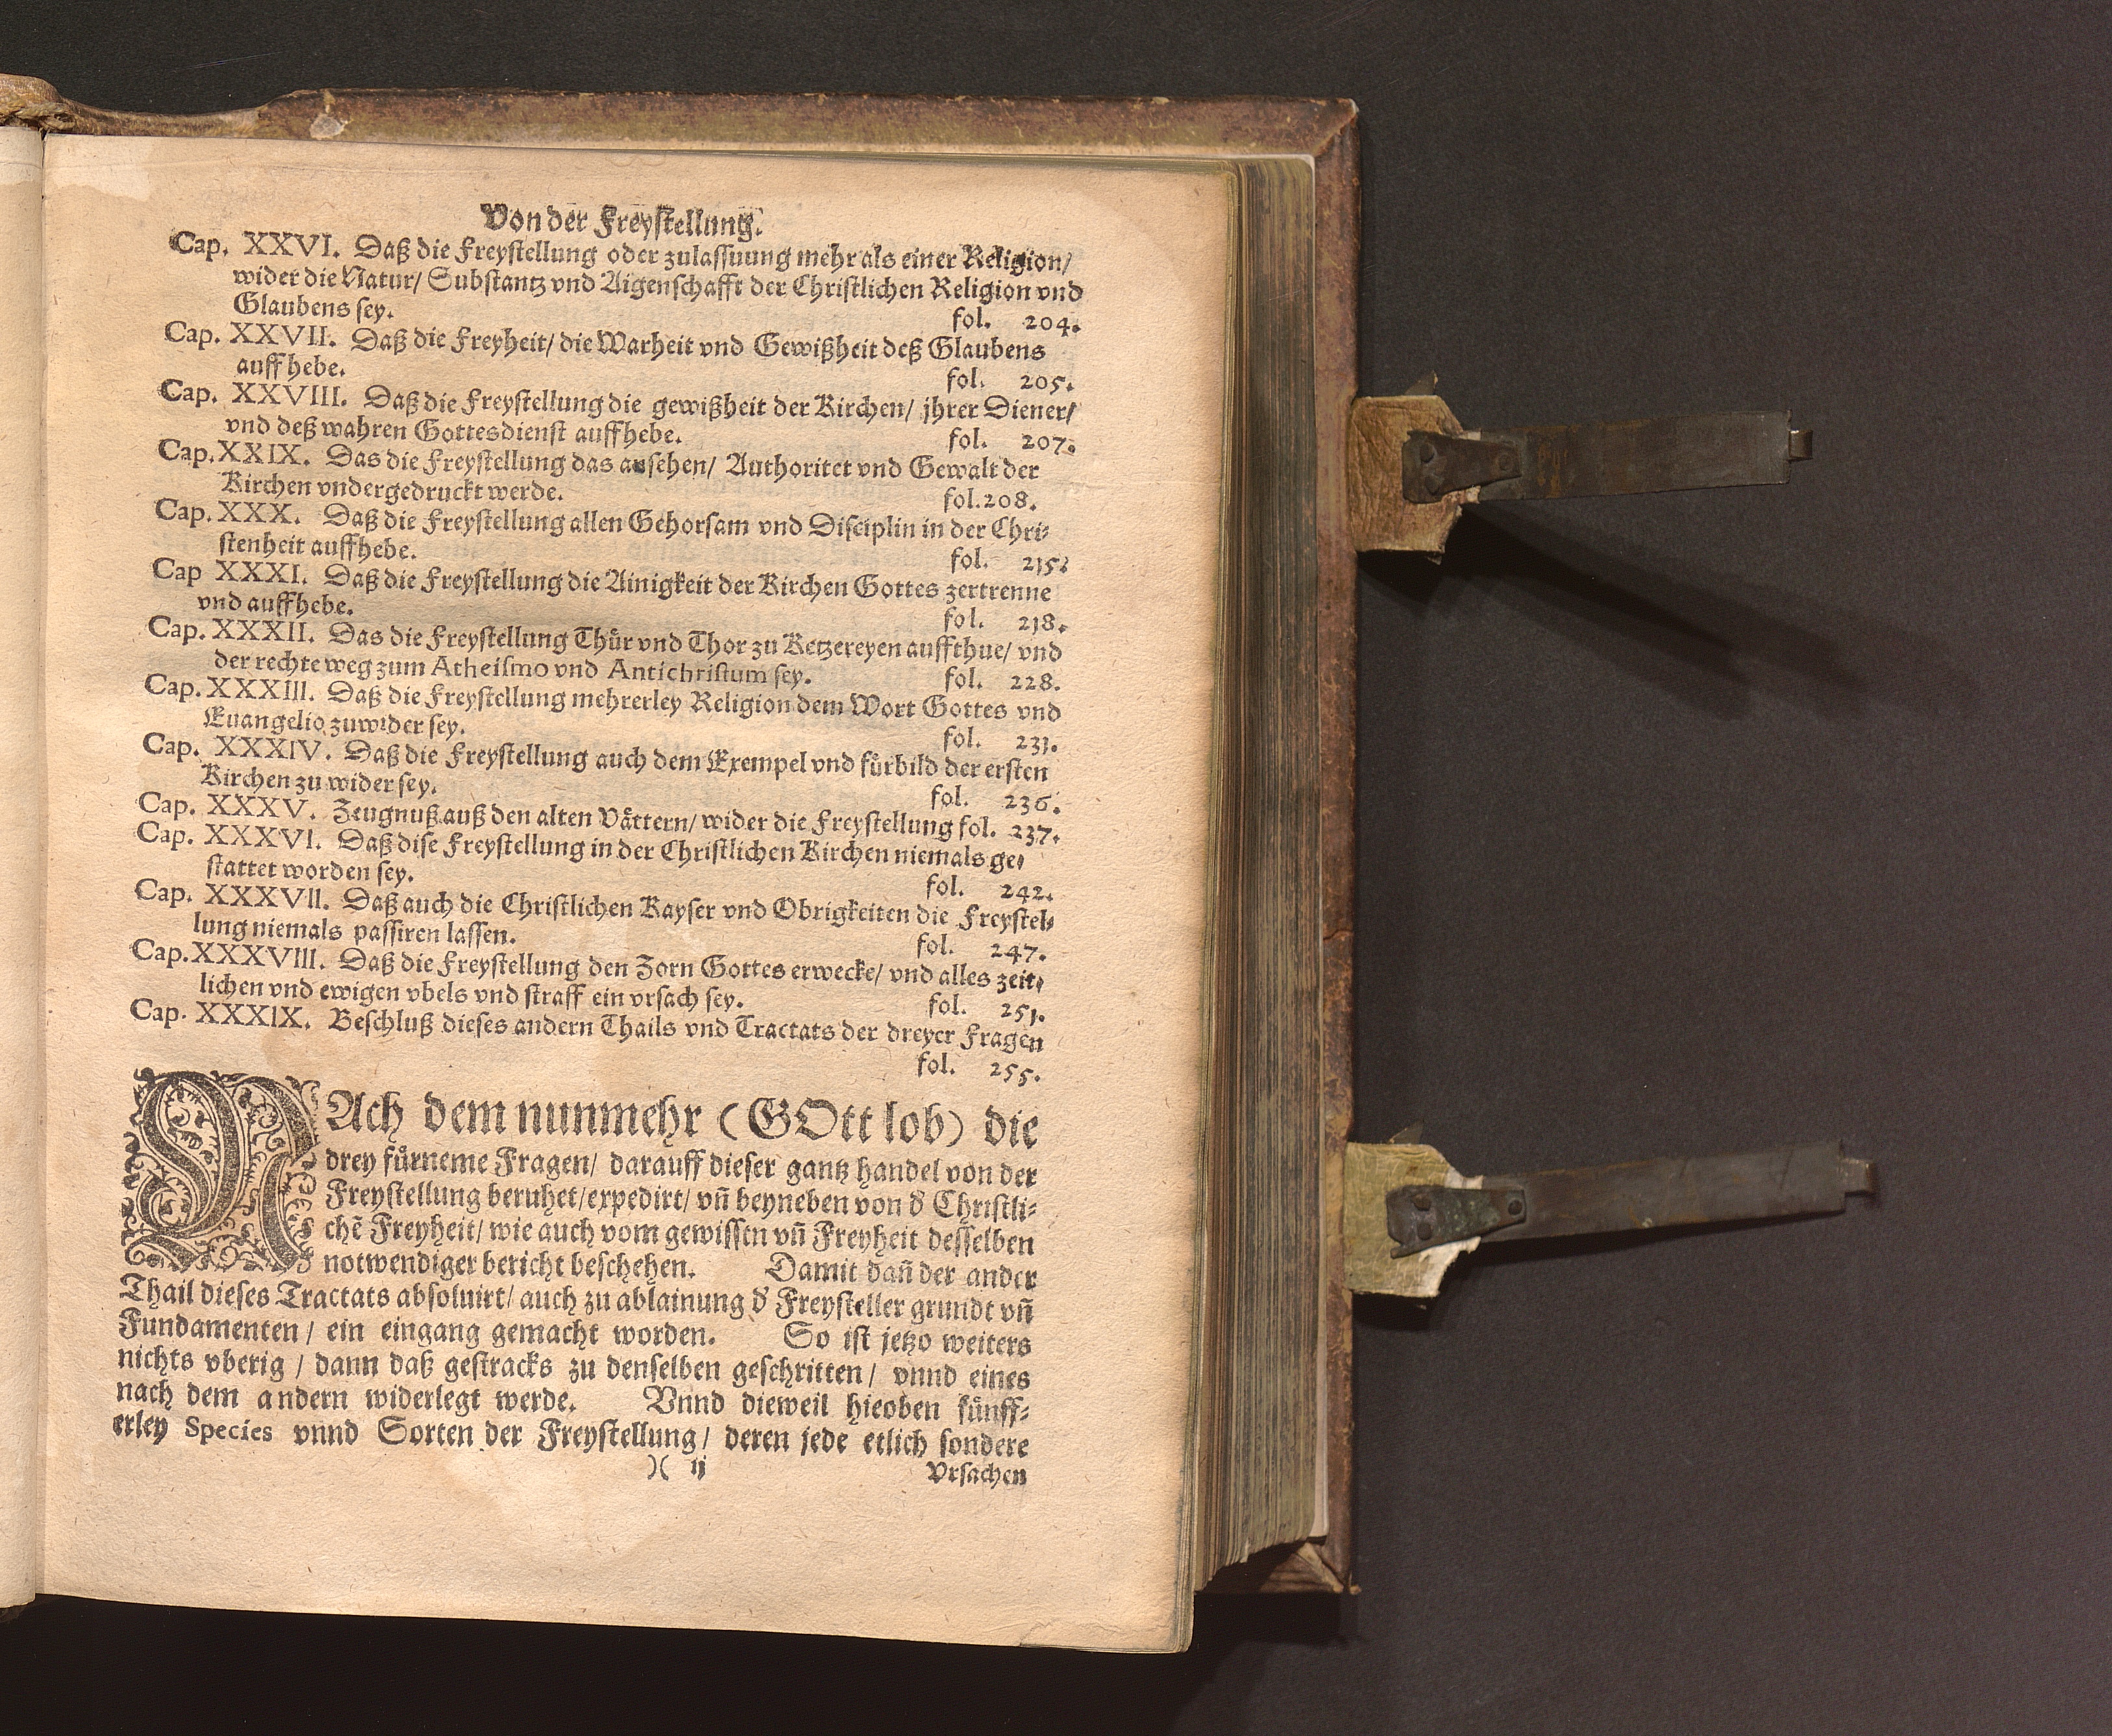 Von der Freystellung.
Cap. XXVI. Daß die Freystellung oder zulassuung mehr als einer Religion/
wider die Natur/ Substantz vnd Aigenschafft der Christlichen Religion vnd
Glaubens sey. fol. 204.
Cap. XXVII. Daß die Freyheit/ die Warheit vnd Gewißheit deß Glaubens
auffhebe. fol. 205.
Cap. XXVIII. Daß die Freystellung die gewißheit der Kirchen/ jhrer Diener/
vnd deß wahren Gottesdienst auffhebe. fol. 207.
Cap. XXIX. Das die Freystellung das ansehen/ Authoritet vnd Gewalt der
Kirchen vndergedruckt werde. fol. 208.
Cap. XXX. Daß die Freystellung allen Gehorsam vnd Disciplin in der Chri-
stenheit auffhebe. fol. 215.
Cap XXXI. Daß die Freystellung die Ainigkeit der Kirchen Gottes zertrenne
vnd auffhebe. fol. 218.
Cap. XXXII. Das die Freystellung Thür vnd Thor zu Ketzereyen auffthue/ vnd
der rechte weg zum Atheismo vnd Antichristum sey. fol. 228.
Cap. XXXIII. Daß die Freystellung mehrerley Religion dem Wort Gottes vnd
Euangelio zuwider sey. fol. 231.
Cap. XXXIV. Daß die Freystellung auch dem Exempel vnd fürbild der ersten
Kirchen zu wider sey. fol. 236.
Cap. XXXV. Zeugnuß auß den alten Vättern/ wider die Freystellung fol. 237.
Cap. XXXVI. Daß dise Freystellung in der Christlichen Kirchen niemals ge-
stattet worden sey. fol. 242.
Cap. XXXVII. Daß auch die Christlichen Kayser vnd Obrigkeiten die Freystel-
lung niemals passiren lassen. fol. 247.
Cap. XXXVIII. Daß die Freystellung den Zorn Gottes erwecke/ vnd alles zeit-
lichen vnd ewigen vbels vnd straff ein vrsach sey. fol. 251.
Cap. XXXIX. Beschluß dieses andern Thails vnd Tractats der dreyer Fragen
fol. 255.
NAch dem nunmehr (GOtt lob) die
drey fürneme Fragen/ darauff dieser gantz handel von der
Freystellung beruhet/ expedirt/ vñ beyneben von d' Christli-
chẽ Freyheit/ wie auch vom gewissen vñ Freyheit desselben
notwendiger bericht beschehen. Damit dañ der ander
Thail dieses Tractats absoluirt/ auch zu ablainung d' Freysteller grundt vñ
Fundamenten/ ein eingang gemacht worden. So ist jetzo weiters
nichts vberig/ dann daß gestracks zu denselben geschritten/ vnnd eines
nach dem andern widerlegt werde. Vnnd dieweil hieoben fünff-
erley Species vnnd Sorten der Freystellung/ deren jede etlich sondere
)( ij Vrsachen